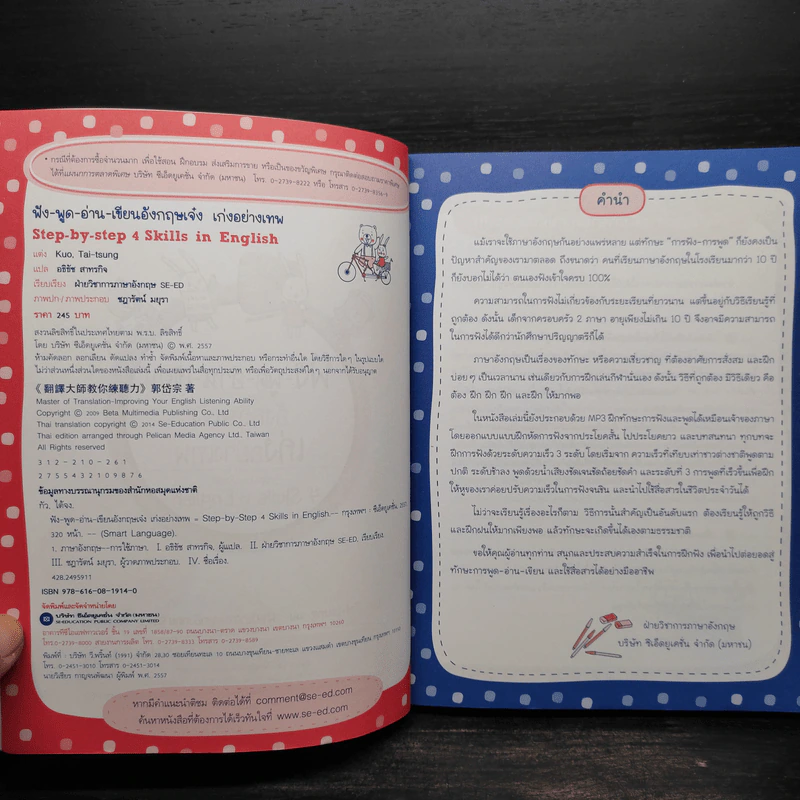 • กรณีที่ต้องการซื้อจำนวนมาก เพื่อใช้สอน ฝึกอบรม ส่งเสริมการขาย หรือเป็นของขวัญพิเศษ กรุณาติดต่อสอบถามราคาพิเศษ
ได้ที่แผนกการตลาดพิเศษ บริษัท ซีเอ็ดยูเคชั่น จำกัด (มหาชน) โทร. 0-2739-8222 หรือ โทรสาร 0-2739-8356-9
ฟัง-พูด-อ่าน-เขียนอังกฤษเจ๋ง เก่งอย่างเทพ
Step-by-step 4 Skills in English
แต่ง Kuo, Tai-tsung
แปล อธิธัช สาทรกิจ
เรียบเรียง ฝ่ายวิชาการภาษาอังกฤษ SE-ED
ภาพปก/ภาพประกอบ ชฎารัตน์ มยุรา
ราคา 245 บาท
สงวนลิขสิทธิ์ในประเทศไทยตาม พ.ร.บ. ลิขสิทธิ์
โดย บริษัท ซีเอ็ดยูเคชั่น จำกัด (มหาชน) © พ.ศ. 2557
ห้ามคัดลอก ลอกเลียน ดัดแปลง ทำซ้ำ จัดพิมพ์เนื้อหาและภาพประกอบ หรือกระทำอื่นใด โดยวิธีการใดๆ ในรูปแบบใด
ไม่ว่าส่วนหนึ่งส่วนใดของหนังสือเล่มนี้ เพื่อเผยแพร่ในสื่อทุกประเภท หรือเพื่อวัตถุประสงค์ใดๆ นอกจากได้รับอนุญาต
《翻譯大師教你練聽力》郭岱宗 著
Master of Translation-Improving Your English Listening Ability
Copyright © 2009 Beta Multimedia Publishing Co., Ltd
Thai translation copyright © 2014 Se-Education Public Co., Ltd
Thai edition arranged through Pelican Media Agency Ltd. Taiwan
All Rights reserved
3 1 2 - 2 1 0 - 2 6 1
2 7 5 5 4 3 2 1 0 9 8 7 6
ข้อมูลทางบรรณานุกรมของสำนักหอสมุดแห่งชาติ
กัว, ไต้จง.
ฟัง-พูด-อ่าน-เขียนอังกฤษเจ๋ง เก่งอย่างเทพ = Step-by-Step 4 Skills in English.-- กรุงเทพฯ : ซีเอ็ดยูเคชั่น,
320 หน้า. -- (Smart Language).
1. ภาษาอังกฤษ--การใช้ภาษา. I. อธิธัช สาทรกิจ, ผู้แปล. II. ฝ่ายวิชาการภาษาอังกฤษ SE-ED, เรียบเรียง
III. ชฎารัตน์ มยุรา, ผู้วาดภาพประกอบ. IV. ชื่อเรื่อง.
428.2495911
ISBN 978-616-08-1914-0
จัดพิมพ์และจัดจำหน่ายโดย
บริษัท ซีเอ็ดยูเคชั่น จำกัด (มหาชน)
SE-EDUCATION PUBLIC COMPANY LIMITED
อาคารทีซีไอเอฟทาวเวอร์ ชั้น 19 เลขที่ 1858/87-90 ถนนบางนา-ตราด แขวงบางนา เขตบางนา กรุงเทพฯ 10260
พิมพ์ที่ : บริษัท วี.พริ้นท์ (1991) จำกัด
โทร. 0-2451-3010 โทรสาร 0-2451-3014
นายวิเชียร กาญจนพัฒนา ผู้พิมพ์ พ.ศ. 2557
หากมีคำแนะนำติชม ติดต่อได้ที่ comment@se-ed.com
ค้นหาหนังสือที่ต้องการได้เร็วทันใจที่ www.se-ed.com
คำนำ
แม้เราจะใช้ภาษาอังกฤษกันอย่างแพร่หลาย แต่ทักษะ "การฟัง-การพูด" ก็ยังคงเป็น
ปัญหาสำคัญของเรามาตลอด ถึงขนาดว่า คนที่เรียนภาษาอังกฤษในโรงเรียนมากว่า 10 ปี
ก็ยังบอกไม่ได้ว่า ตนเองฟังเข้าใจครบ 100%
ความสามารถในการฟังไม่เกี่ยวข้องกับระยะเรียนที่ยาวนาน แต่ขึ้นอยู่กับวิธีเรียนรู้ที่
ถูกต้อง ดังนั้น เด็กจากครอบครัว 2 ภาษา อายุเพียงไม่เกิน 10 ปี จึงอาจมีความสามารถ
ในการฟังได้ดีกว่านักศึกษาปริญญาตรีก็ได้
ภาษาอังกฤษเป็นเรื่องของทักษะ หรือความเชี่ยวชาญ ที่ต้องอาศัยการสั่งสม และฝึก
บ่อยๆ เป็นเวลานาน เช่นเดียวกับการฝึกเล่นกีฬานั่นเอง ดังนั้น วิธีที่ถูกต้อง มีวิธีเดียว คือ
ต้อง ฝึก ฝึก ฝึก และ ฝึก ให้มากพอ
ในหนังสือเล่มนี้ยังประกอบด้วย MP3 ฝึกทักษะการฟังและพูดได้เหมือนเจ้าของภาษา
โดยออกแบบแบบฝึกหัดการฟังจากประโยคสั้น ไปประโยคยาว และบทสนทนา ทุกบทจะ
ฝึกการฟังด้วยระดับความเร็ว 3 ระดับ โดยเริ่มจาก ความเร็วที่เทียบเท่าชาวต่างชาติพูดตาม
ปกติ ระดับช้าลง พูดด้วยน้ำเสียงชัดเจนชัดถ้อยชัดคำ และระดับที่ 3 การพูดที่เร็วขึ้นเพื่อฝึก
ให้หูของเราค่อยปรับความเร็วในการฟังจนชิน และนำไปใช้สื่อสารในชีวิตประจำวันได้
ไม่ว่าจะเรียนรู้เรื่องอะไรก็ตาม วิธีการนั้นสำคัญเป็นอันดับแรก ต้องเรียนรู้ให้ถูกวิธี
และฝึกฝนให้มากเพียงพอ แล้วทักษะจะเกิดขึ้นได้เองตามธรรมชาติ
ขอให้คุณผู้อ่านทุกท่าน สนุกและประสบความสำเร็จในการฝึกฟัง เพื่อนำไปต่อยอดสู่
ทักษะการพูด-อ่าน-เขียน และใช้สื่อสารได้อย่างมืออาชีพ
ฝ่ายวิชาการภาษาอังกฤษ
บริษัท ซีเอ็ดยูเคชั่น จำกัด (มหาชน)